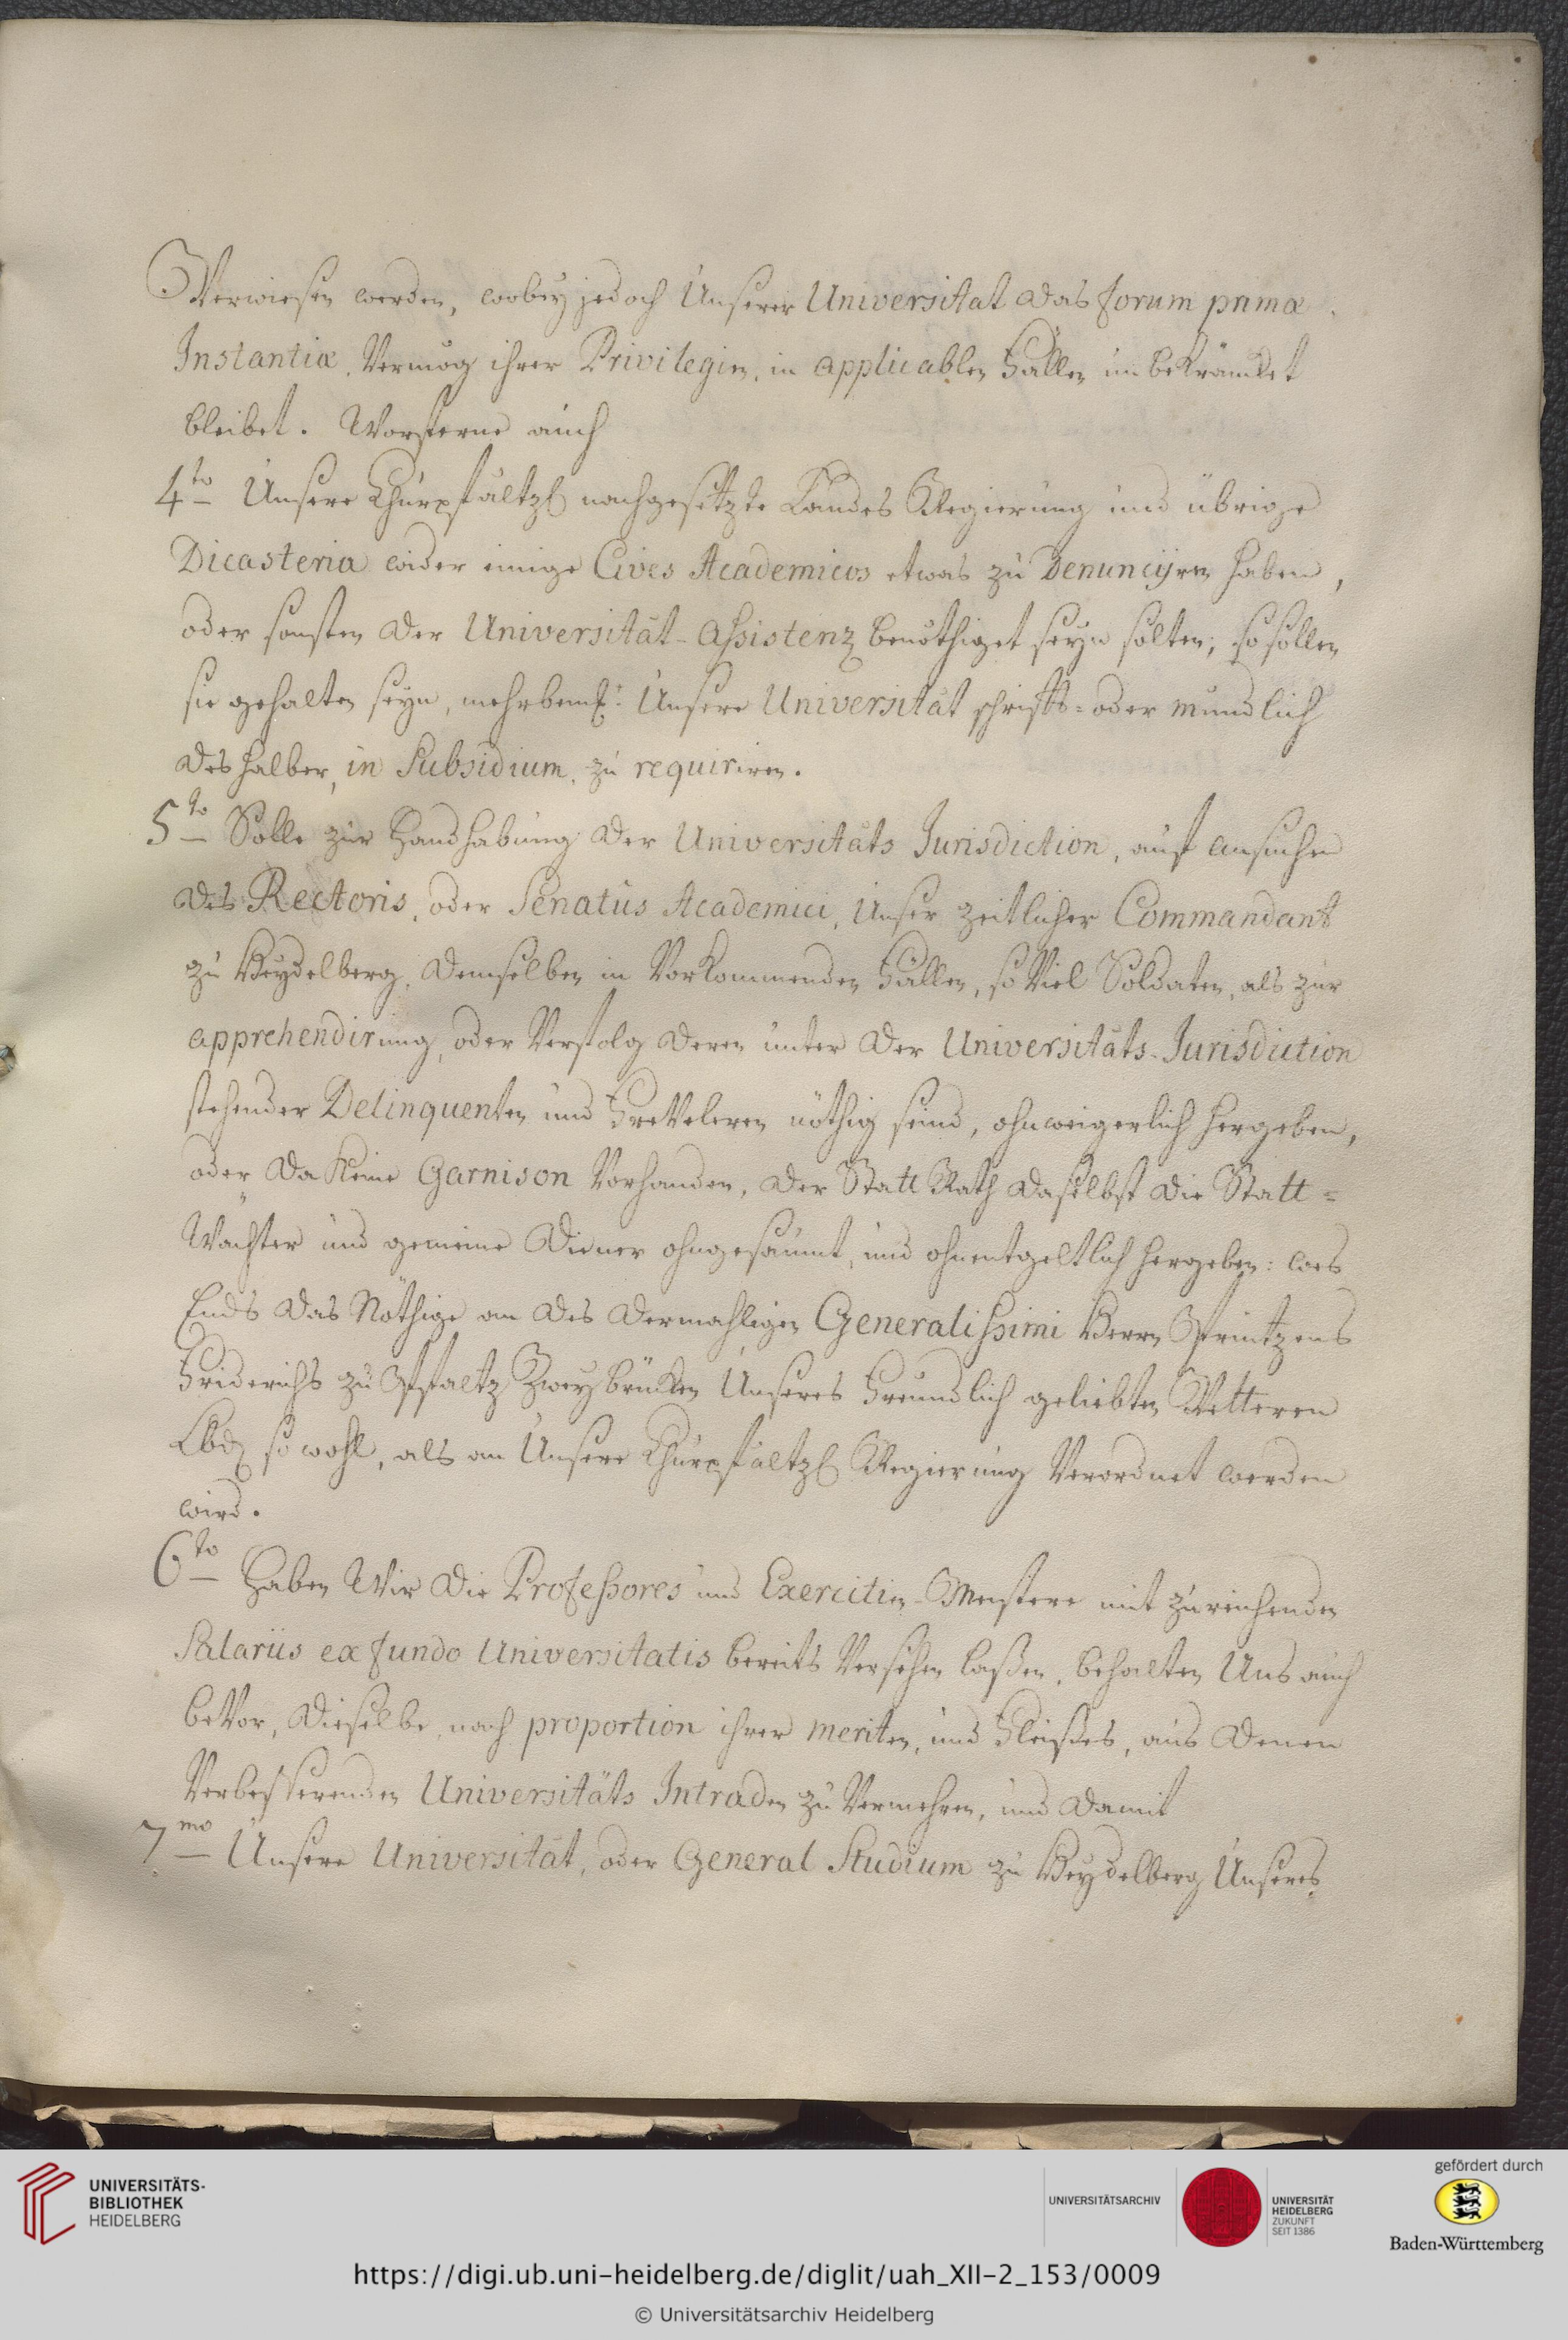 Verwiesen werden, wobey jedoch Unserer Universitat das forum primæ
Instantiæ, Vermög ihrer Privilegien, in applicablen Fällen unbekräncket
bleibet. Woferne auch
4to Unsere Churpfältzl nachgesetzte Landes Regierung und übrige
Dicasteria wider einige Cives Academicos etwas zu Denuncijren haben,
oder sonsten der Universität-Assistenz benöthiget seyn solten; so sollen
sie gehalten seyn, mehrbemt: Unsere Universität schrifft- oder mündlich
deshalber, in Subsidium, zu requiriren.
5to Solle zur Handhabung der Universitäts Jurisdiction, auf ansuchen
des Rectoris, oder Senatus Academici, Unser zeitlicher Commandant
zu Heydelberg, demselben in Vorkommenden Fällen, so Viel Soldaten, als zur
apprehendirung, oder Verfolg deren unter der Universitäts-Jurisdiction
stehender Delinquenten und Freveleren nöthig seind, ohnweigerlich hergeben,
oder da keine Garnison Vorhanden, der Statt Rath daselbst die Statt=
Wächter und gemeine Diener ohngesäumt, und ohnentgeltlich hergeben: wes
Ends das Nöthige an des dermahligen Generalissimi Herrn Printzens
Friderichs zu Pfaltz Zweybrücken Unseres Freundlich geliebten Vetteren
Lbd so wohl, als an Unsere Churpfältzl Regierung Verordnet werden
wird.
6to Haben Wir die Professores und Exercitien-Meistere mit zureichenden
Salariis ex fundo Universitatis bereits Versehen laßen, behalten Uns auch
beVor, dieselbe, nach proportion ihrer meriten, und Fleißes, aus denen
Verbesserenden Universitäts Intraden zu Vermehren, und damit
7mo Unsere Universität, oder General Studium zu Heydelberg Unseres
UNIVERSITÄTS-
BIBLIOTHEK
HEIDELBERG
UNIVERSITÄTSARCHIV
UNIVERSITÄT
HEIDELBERG
ZUKUNFT
SEIT 1386
gefördert durch
Baden-Württemberg
https://digi.ub.uni-heidelberg.de/diglit/uah_XII-2_153/0009
© Universitätsarchiv Heidelberg